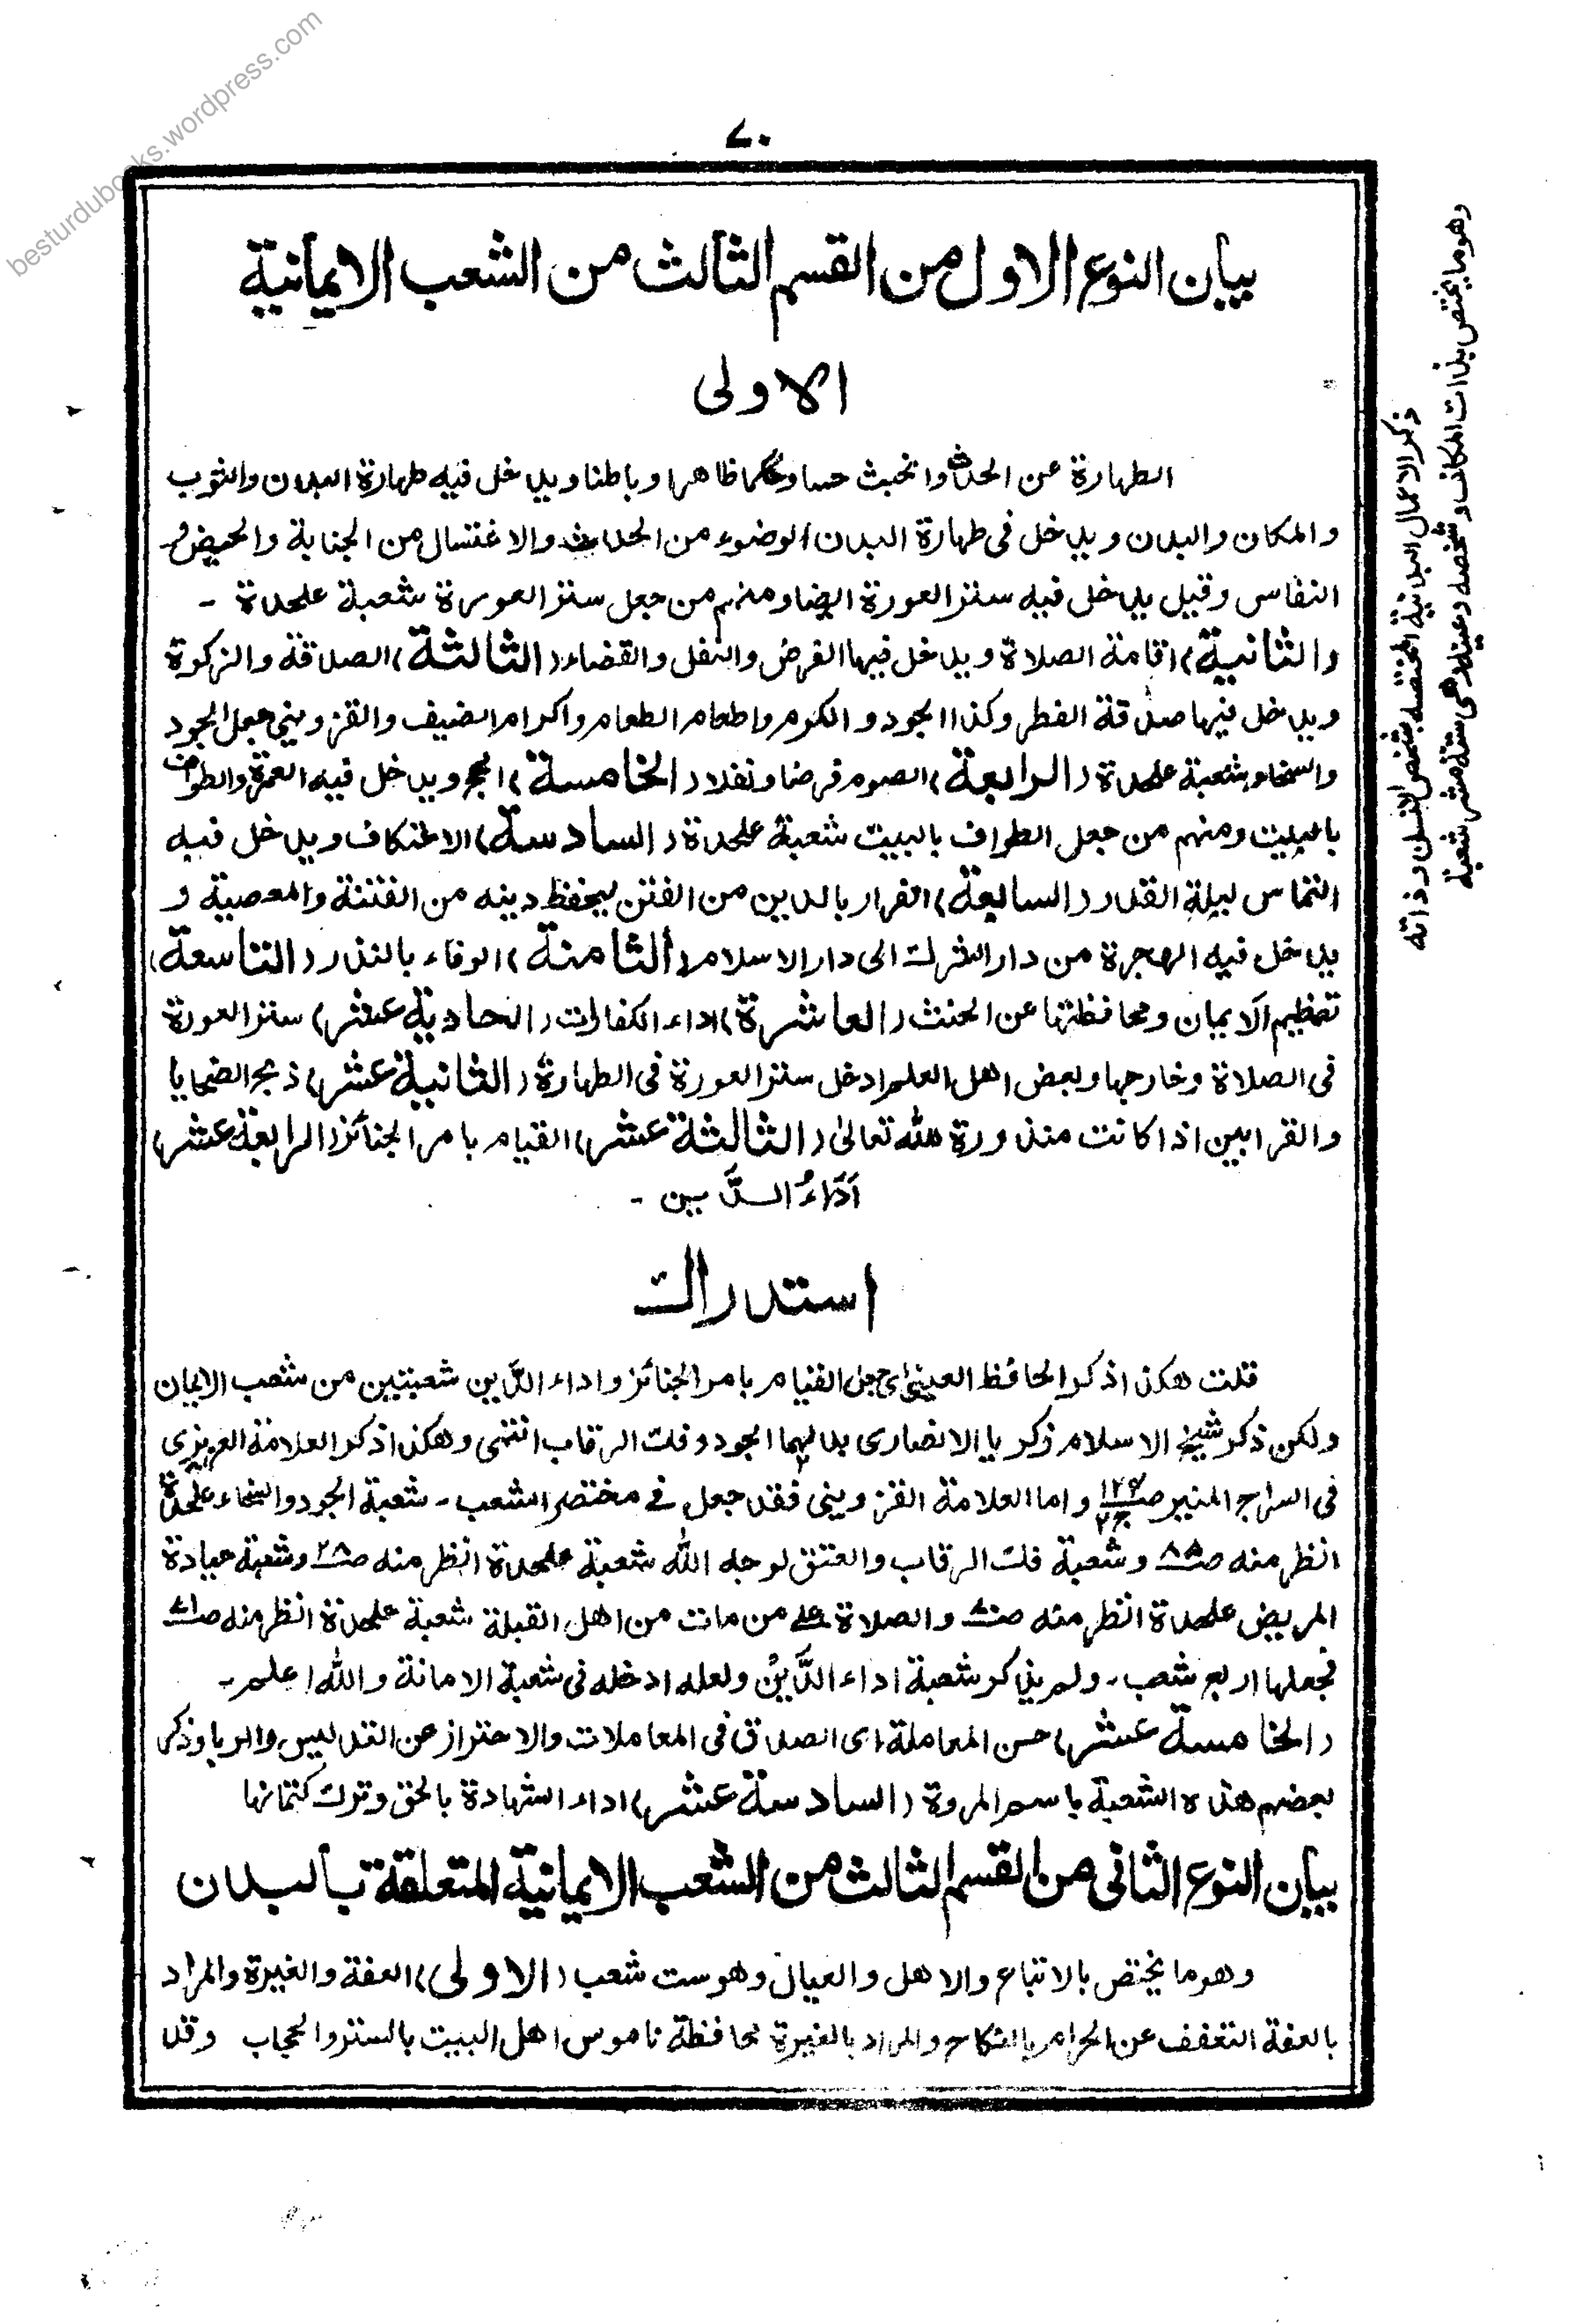 besturdubooks.wordpress.com
٧٠
بيان النوع الاول من القسم الثالث من الشعب الايمانية
الاولى
الطهارة عن الحدث والخبث حسا وحكما ظاهرا وباطنا ويدخل فيه طهارة البدن والثوب
والمكان والبدن ويدخل فى طهارة البدن الوضوء من الحدث والاغتسال من الجنابة والحيض و
النفاس وقيل يدخل فيه ستر العورة ايضا ومنهم من جعل ستر العورة شعبة علحدة -
والثانية) اقامة الصلاة ويدخل فيها الفرض والنفل والقضاء (الثالثة) الصدقة والزكوة
ويدخل فيها صدقة الفطر وكذا الجود و الكرم واطعام الطعام واكرام الضيف والقزوينى جعل الجود
والسخاء شعبة علحدة (الرابعة) الصوم فرضا ونفلا (الخامسة) الحج ويدخل فيه العمرة والطواف
بالبيت ومنهم من جعل الطواف بالبيت شعبة علحدة (السادسة) الاعتكاف ويدخل فيه
التماس ليلة القدر (السابعة) الفرار بالدين من الفتن ليحفظ دينه من الفتنة والمعصية و
يدخل فيه الهجرة من دار الشرك الى دار الاسلام (الثامنة) الوفاء بالنذر (التاسعة)
تعظيم الايمان ومحافظتها عن الحنث (العاشرة) اداء الكفارات (الحادية عشر) ستر العورة
فى الصلاة وخارجها وبعض اهل العلم ادخل ستر العورة فى الطهارة (الثانية عشر) ذبح الضحايا
والقرابين اذا كانت منذورة لله تعالىٰ (الثالثة عشر) القيام بامر الجنائز (الرابعة عشر)
اَدَاءُ الدَّين -
استدراك
قلت هكذا ذكر الحافظ العينى اى جعل القيام بامر الجنائز واداء الدَّين شعبتين من شعب الايمان
ولكن ذكر شيخ الاسلام زكريا الانصارى بدلهما الجود وفك الرقاب انتهى وهكذا ذكر العلامة العزيزى
فى السراج المنير ص١٢٤ ج٢ واما العلامة القزوينى فقد جعل فى مختصر الشعب - شعبة الجود والسخاء علحدة
انظر منه ص٨٥ وشعبة فك الرقاب والعتق لوجه الله شعبة علحدة انظر منه ص٢٨ وشعبة عيادة
المريض علحدة انظر منه ص٧٠ والصلاة على من مات من اهل القبلة شعبة علحدة انظر منه ص٧١
فجعلها اربع شعب - ولم يذكر شعبة اداء الدَّين ولعله ادخله فى شعبة الامانة والله اعلم -
(الخامسة عشر) حسن المعاملة اى الصدق فى المعاملات والاحتراز عن التدليس والربا وذكر
بعضهم هذه الشعبة باسم المروة (السادسة عشر) اداء الشهادة بالحق وترك كتمانها
بيان النوع الثانى من القسم الثالث من الشعب الايمانية المتعلقة بالبدن
وهو ما يختص بالاتباع والاهل والعيال وهو ست شعب (الاولى)) العفة والغيرة والمراد
بالعفة التعفف عن الحرام بالنكاح والمراد بالغيرة محافظة ناموس اهل البيت بالستر والحجاب وقد
ذكر الاعمال البدنية المختصة بشخص الانسان وذاته
وهو ما يختص بذات المكلف وشخصه وعينه وهى ستة عشر شعبة